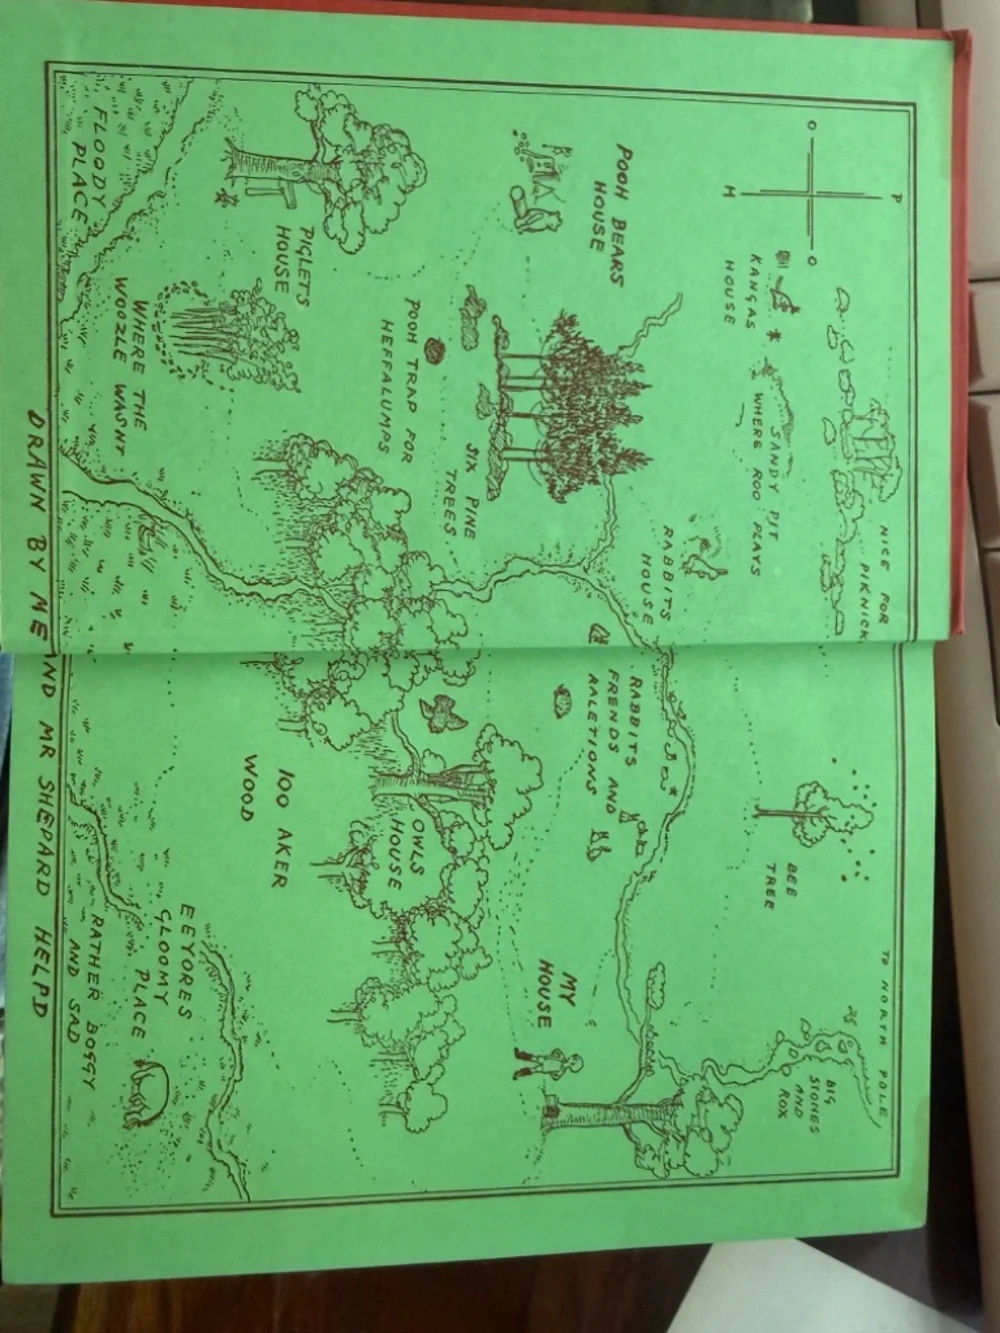 P
O
O
H
NICE FOR
PIKNICK
TO NORTH POLE
BIG
STONES
AND
ROX
SANDY PIT
WHERE ROO PLAYS
KANGAS
HOUSE
BEE
TREE
RABBITS
HOUSE
RABBITS
FRENDS AND
RALETIONS
POOH BEARS
HOUSE
MY
HOUSE
SIX PINE
TREES
POOH TRAP FOR
HEFFALUMPS
OWLS
HOUSE
PIGLETS
HOUSE
100 AKER
WOOD
WHERE THE
WOOZLE WASNT
EEYORES
GLOOMY
PLACE
RATHER BOGGY
AND SAD
FLOODY
PLACE
DRAWN BY ME AND MR SHEPARD HELPD